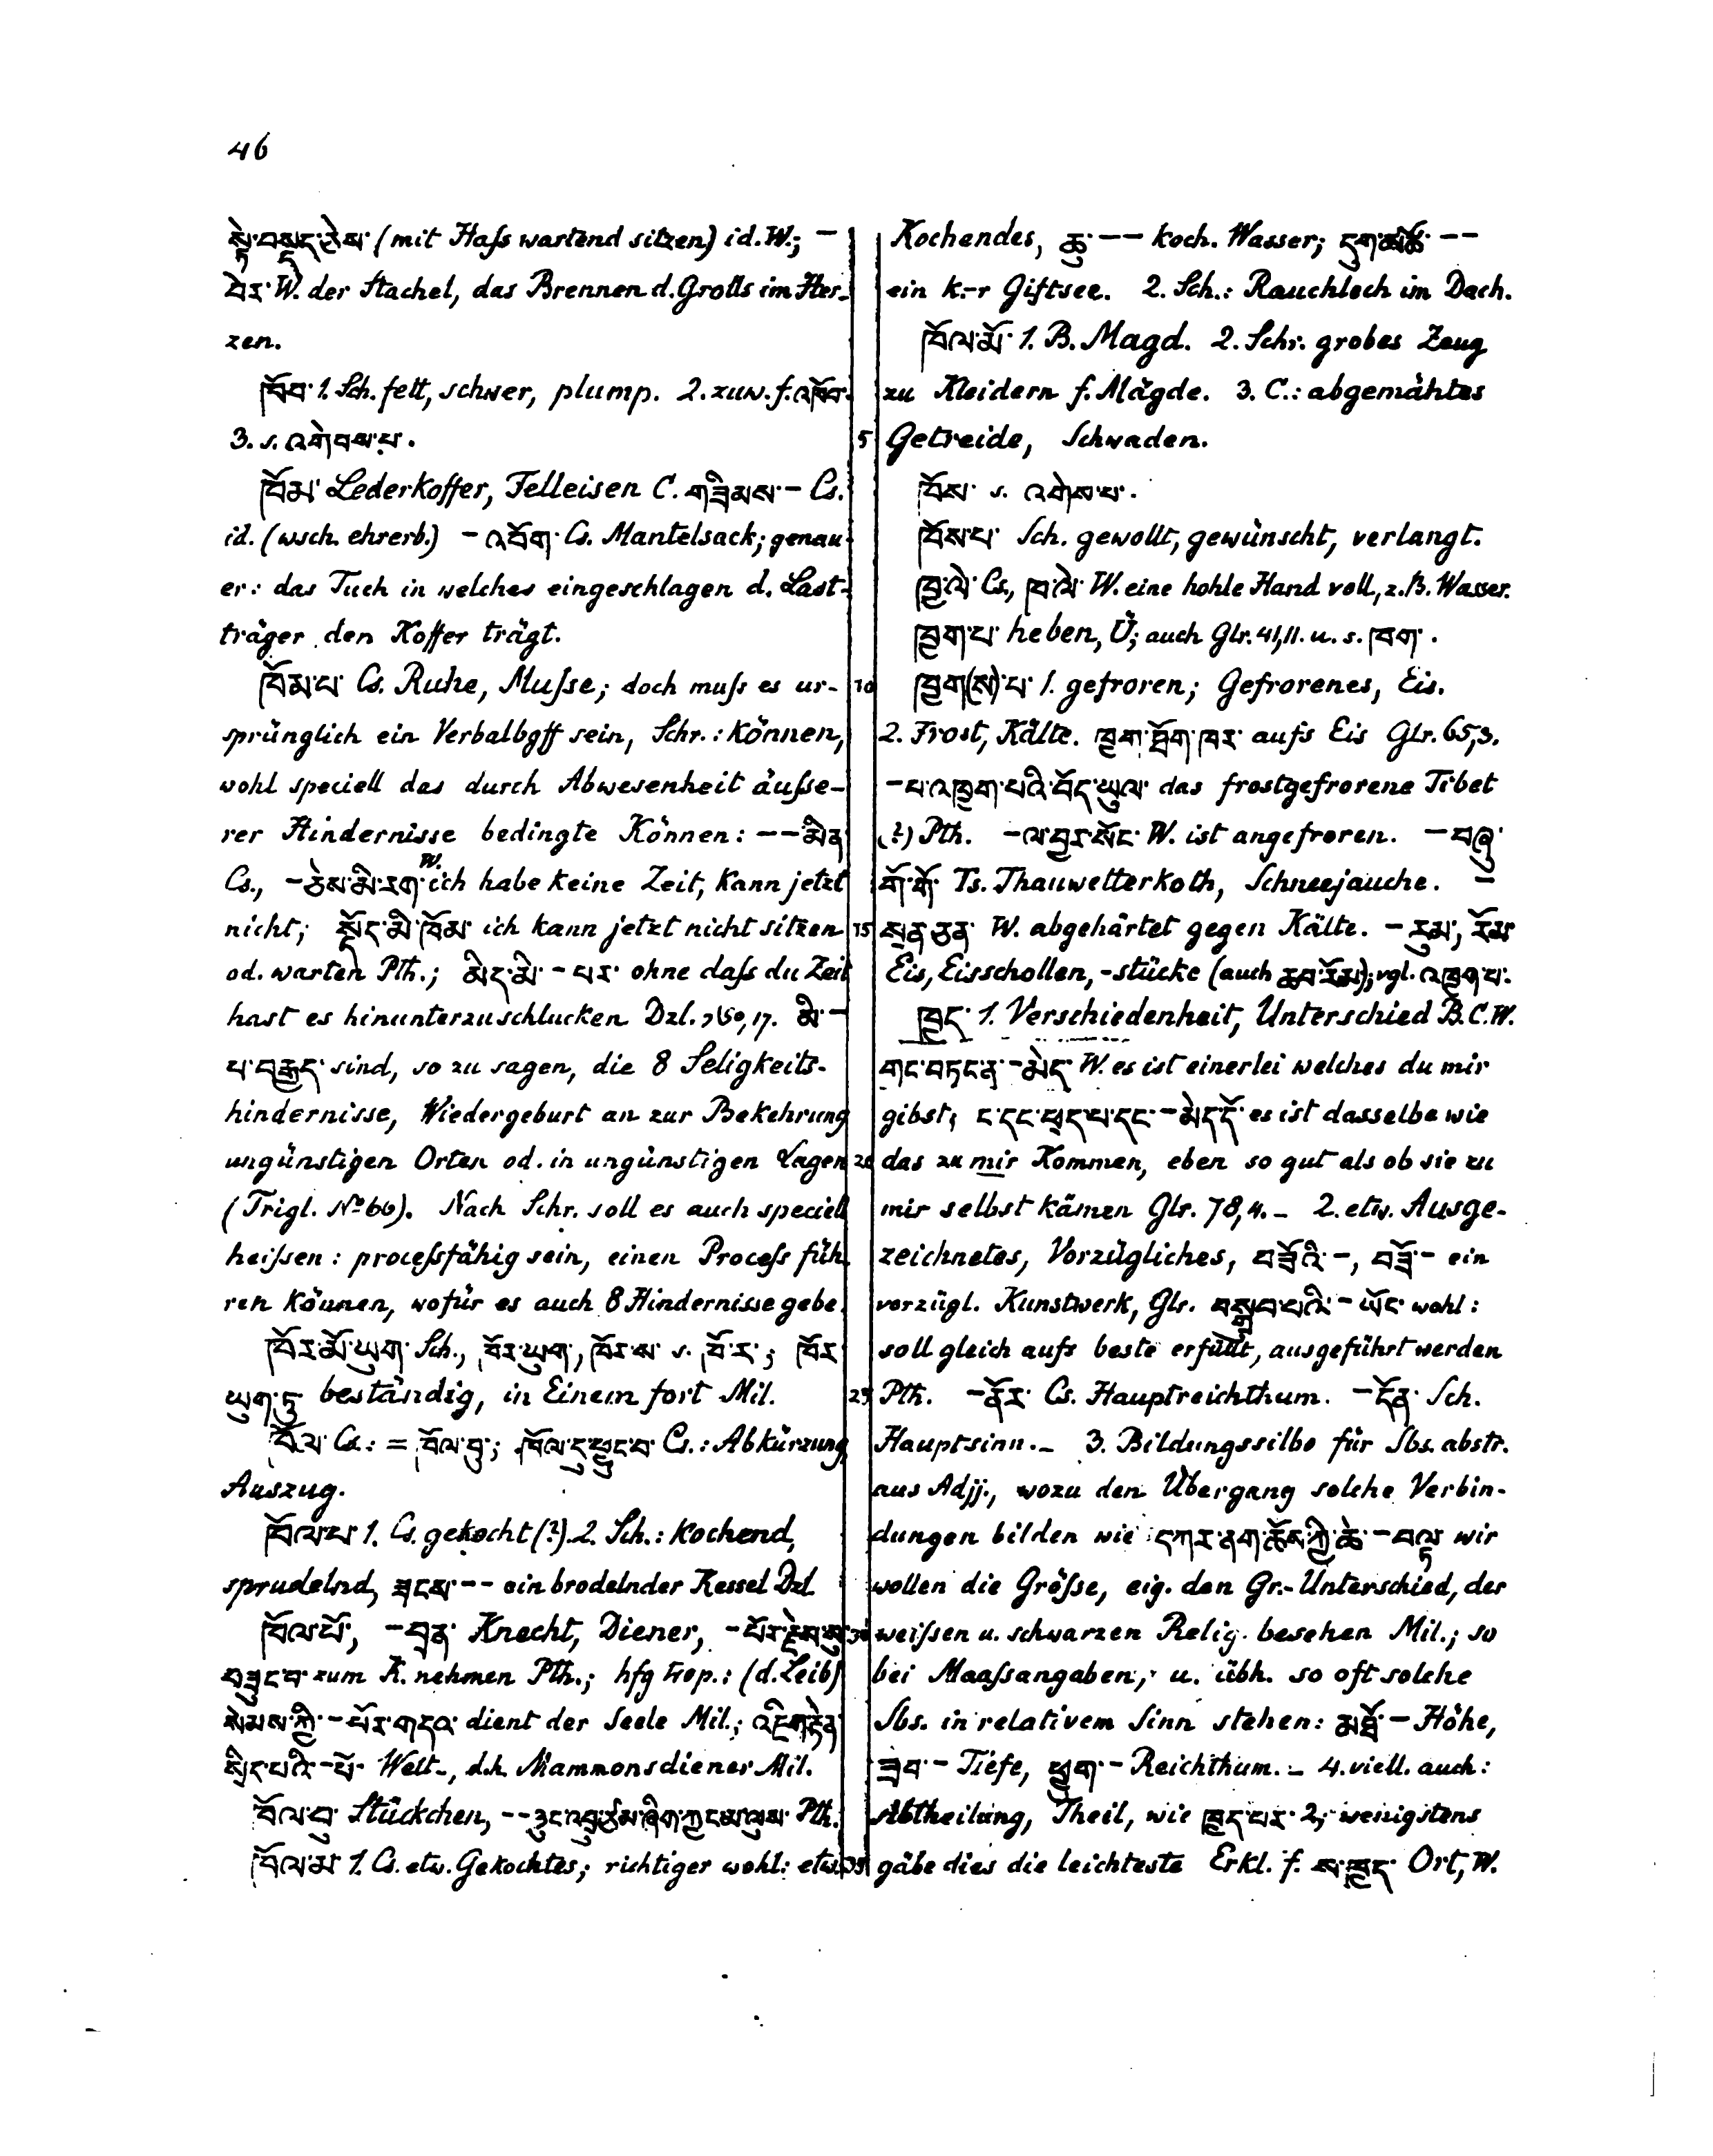 46
སྟེ་བསྡད་ཅེས་ (mit Haſs wartend sitzen) id. W.; –
བེར་ W. der Stachel, das Brennen d. Grolls im Her-
zen.
ཁོབ་ 1. Sch. fett, schwer, plump. 2. zuw. f. འཁོབ་
3. s. འགེབས་པ་.
ཁོམ་ Lederkoffer, Felleisen C. གཟིམས་ – Cs.
id. (wsch. ehrerb.) – འབོག་ Cs. Mantelsack; genau-
er: das Tuch in welches eingeschlagen d. Last-
träger den Koffer trägt.
ཁོམ་པ་ Cs. Ruhe, Muſse; doch muſs es ur-
sprünglich ein Verbalbgff sein, Schr.: können,
wohl speciell das durch Abwesenheit äuſse-
rer Hindernisse bedingte Können: – – མིན་
Cs., – ཅེས་མི་རག་ W. ich habe keine Zeit, kann jetzt
nicht; སྡོད་མི་ཁོམ་ ich kann jetzt nicht sitzen
od. warten Pth.; མིད་མི་ – པར་ ohne daſs du Zeit
hast es hinunterzuschlucken Dzl. 17. མི་ –
པ་བརྒྱད་ sind, so zu sagen, die 8 Seligkeits-
hindernisse, Wiedergeburt an zur Bekehrung
ungünstigen Orten od. in ungünstigen Lagen
(Trigl. No 66). Nach Schr. soll es auch speciell
heiſsen: proceſsfähig sein, einen Proceſs füh-
ren können, wofür es auch 8 Hindernisse gebe.
ཁོར་མོ་ཡུག་ Sch., ཁོར་ཡུག་, ཁོར་ས་ s. ཁོ་ར་; ཁོར་
ཡུག་ཏུ་ beständig, in Einem fort Mil.
ཁོལ་ Cs.: = ཁོལ་བུ་; ཁོལ་དུ་ཕྱུང་བ་ Cs.: Abkürzung,
Auszug.
ཁོལ་པ་ 1. Cs. gekocht (?). 2. Sch.: kochend,
sprudelnd, ཟངས་ – – ein brodelnder Kessel Dzl.
ཁོལ་པོ་, – བྲན་ Knecht, Diener, – པོར་རྗེས་སུ་
བཟུང་བ་ zum K. nehmen Pth.; hfg trop.: (d. Leib)
སེམས་ཀྱི་ – པོར་གདའ་ dient der Seele Mil.; འཇིག་རྟེན་
སྲིད་པའི་ – པོ་ Welt-, d.h. Mammonsdiener Mil.
ཁོལ་བུ་ Stückchen, – – Pth.
ཁོལ་མ་ 1. Cs. etw. Gekochtes; richtiger wohl: etw.
Kochendes, ཆུ་ – – koch. Wasser; དུག་མཚོ་ – –
ein k.-r Giftsee. 2. Sch.: Rauchloch im Dach.
ཁོལ་མོ་ 1. B. Magd. 2. Schr. grobes Zeug
zu Kleidern f. Mägde. 3. C.: abgemähtes
5 Getreide, Schwaden.
ཁོས་ s. འགེས་པ་.
ཁོས་པ་ Sch. gewollt, gewünscht, verlangt.
ཁྱ་ལེ་ Cs., ཁ་ལེ་ W. eine hohle Hand voll, z.B. Wasser.
ཁྱག་པ་ heben, Ü; auch Glr. 41,11. u. s. ཁག་.
10 ཁྱག(ས)་པ་ 1. gefroren; Gefrorenes, Eis.
2. Frost, Kälte. ཁྱག་ཐོག་ཁར་ aufs Eis Glr. 65,3.
– པ་འཁྱག་པའི་བོད་ཡུལ་ das frostgefrorene Tibet
(?) Pth. – ལ་བྱར་སོང་ W. ist angefroren. – བཞུ་
གོ་གོ་ Ts. Thauwetterkoth, Schneejauche. –
15 སྲན་ཅན་ W. abgehärtet gegen Kälte. – རུམ་, རོམ་
Eis, Eisschollen, -stücke (auch ཆབ་རོམ་); vgl. འཁྱག་པ་.
ཁྱད་ 1. Verschiedenheit, Unterschied B. C. W.
གང་བཏང་ན་ – མེད་ W. es ist einerlei welches du mir
gibst; ང་དང་ཕྲད་པ་དང་ – མེད་དོ་ es ist dasselbe wie
20 das zu mir Kommen, eben so gut als ob sie zu
mir selbst kämen Glr. 78,4. – 2. etw. Ausge-
zeichnetes, Vorzügliches, བཟོའི་ –, བཟོ་ – ein
vorzügl. Kunstwerk, Glr. བསྒྲུབ་པའི་ – ཡོང་ wohl:
soll gleich aufs beste erfüllt, ausgeführt werden
25 Pth. – ནོར་ Cs. Hauptreichthum. – དོན་ Sch.
Hauptsinn. – 3. Bildungssilbe für Sbs. abstr.
aus Adjj., wozu den Übergang solche Verbin-
dungen bilden wie དཀར་ནག་ཆོས་ཀྱི་ཆེ་ – བལྟ་ wir
wollen die Gröſse, eig. den Gr.-Unterschied, der
30 weiſsen u. schwarzen Relig. besehen Mil.; so
bei Maaſsangaben, u. übh. so oft solche
Sbs. in relativem Sinn stehen: མཐོ་ – Höhe,
ཟབ་ – Tiefe, ཕྱུག་ – Reichthum. – 4. viell. auch:
Abtheilung, Theil, wie ཁྱད་པར་ 2; wenigstens
35 gäbe dies die leichteste Erkl. f. ས་ཁྱད་ Ort, W.